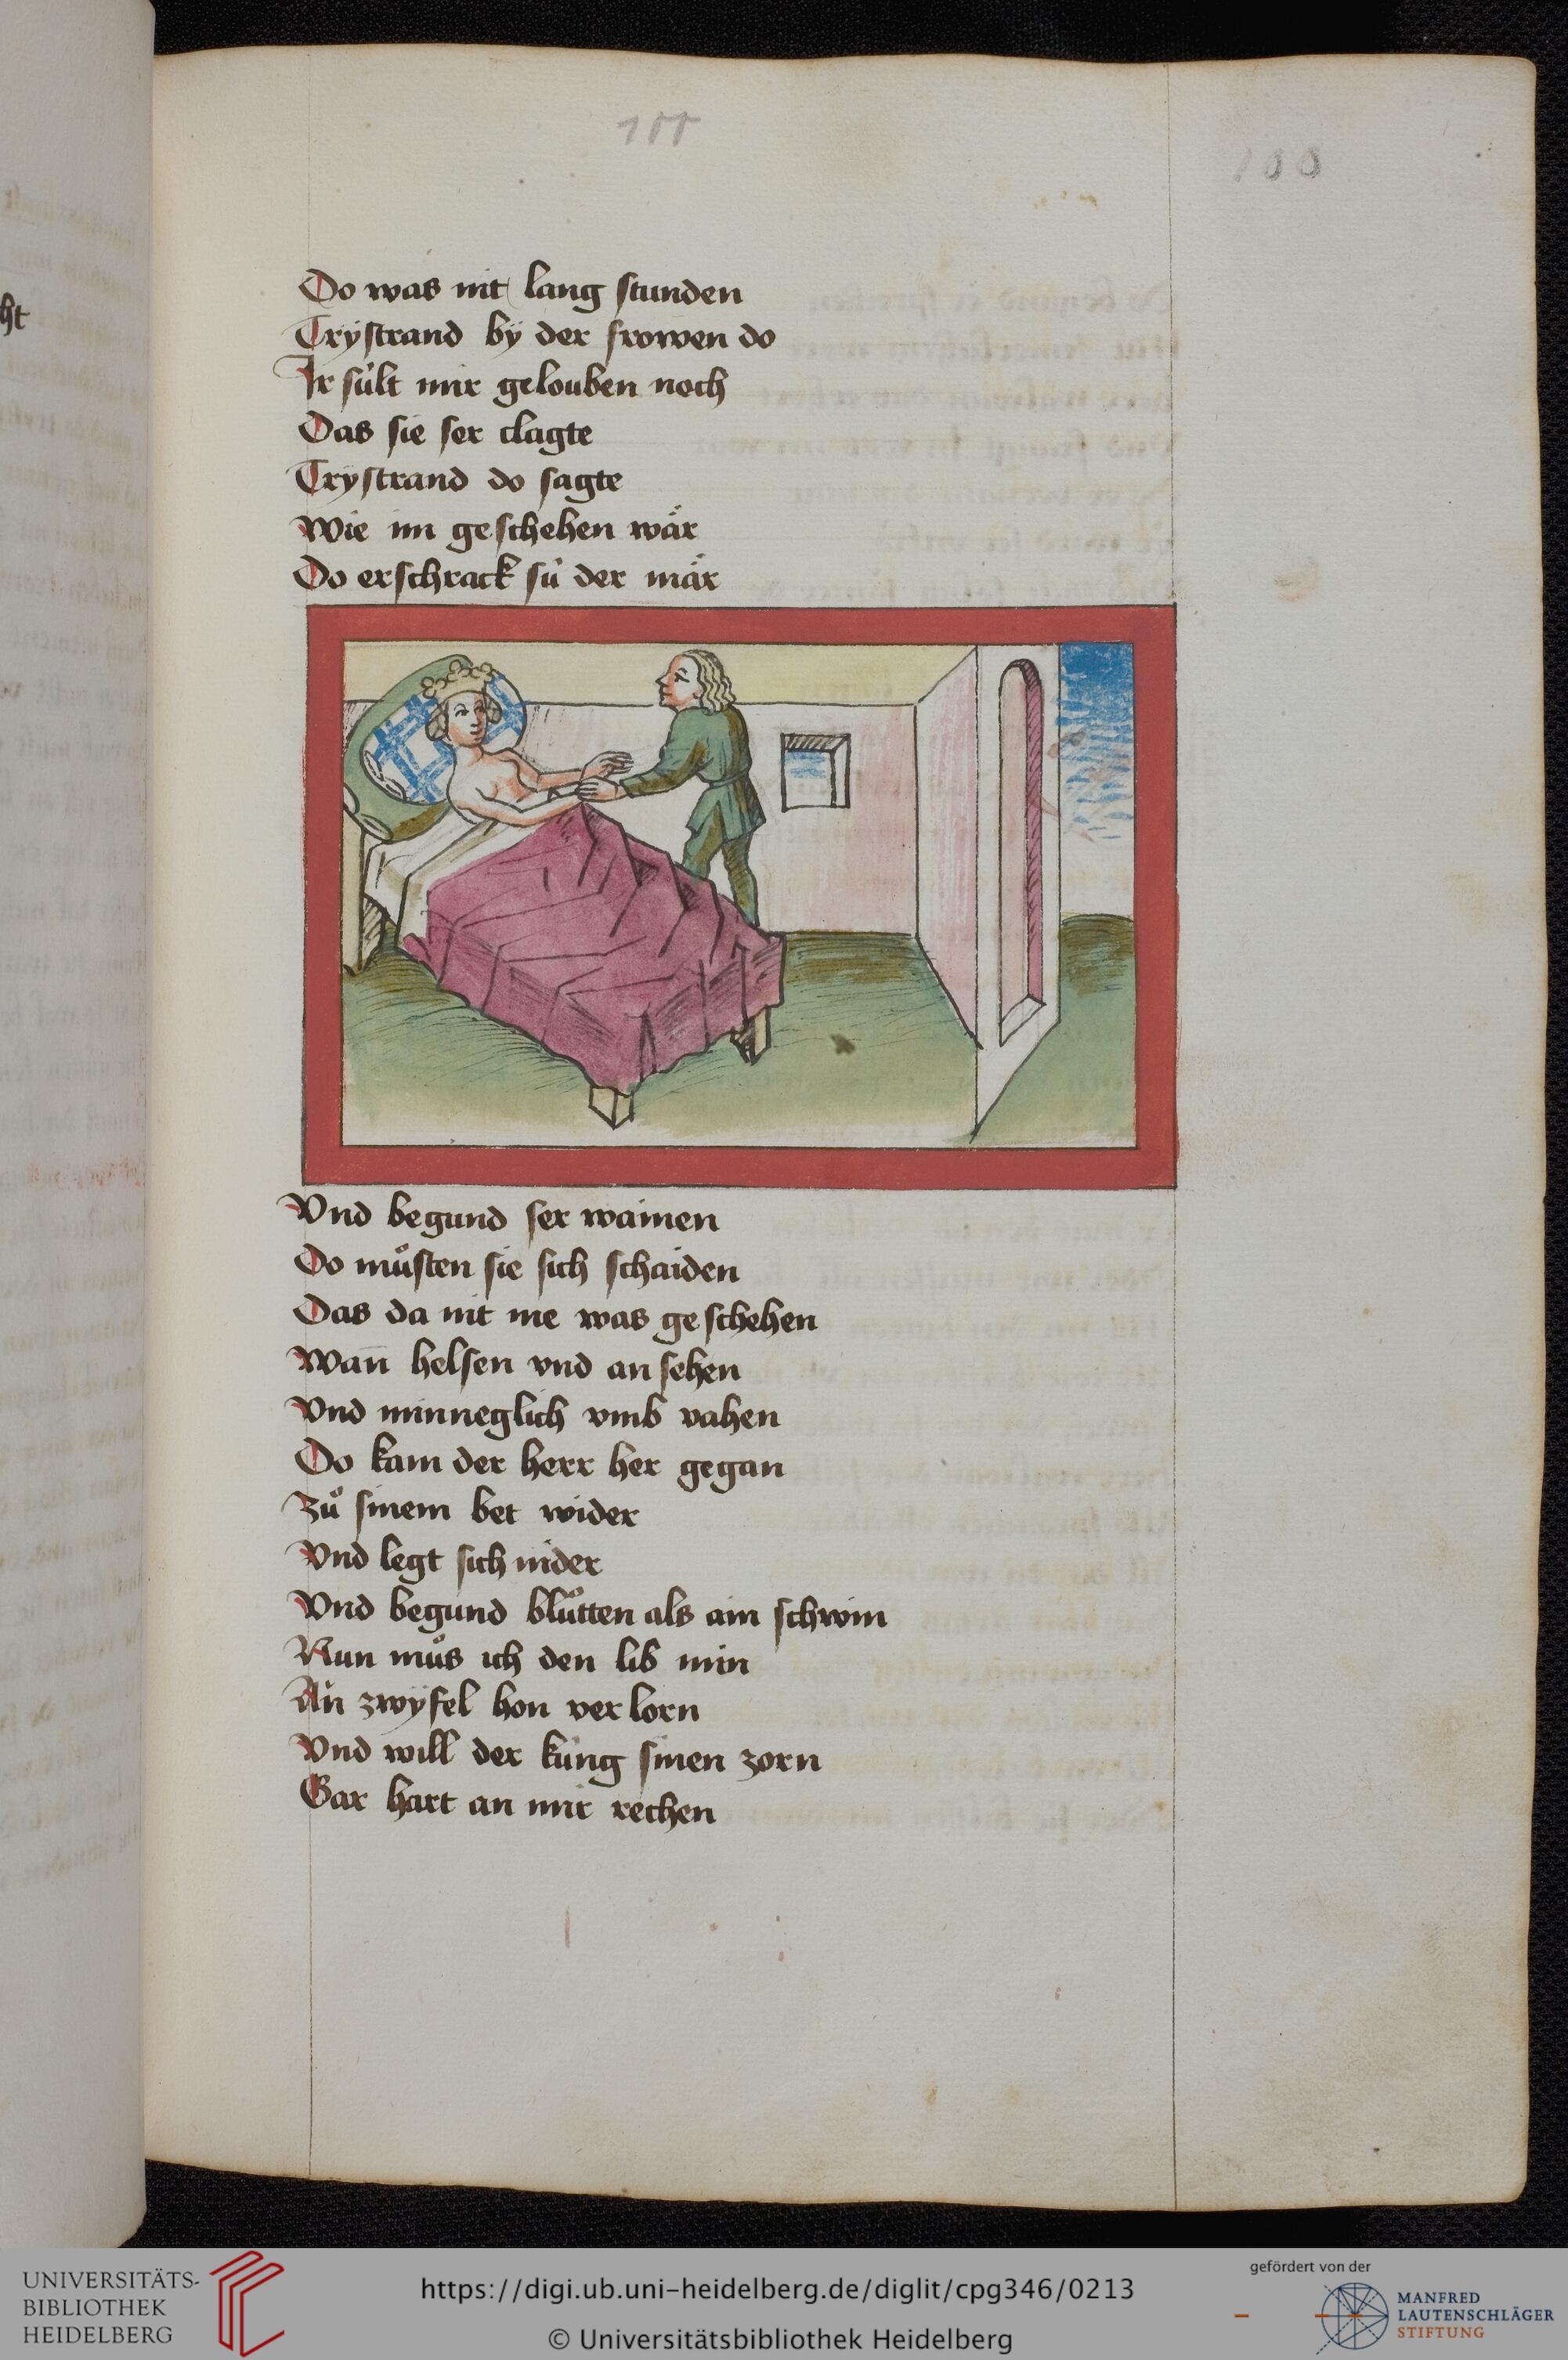 100
100
ht
Do was nit lang stunden
Trÿstrand bÿ der frowen do
Ir sült mir gelouben noch
Das sie ser clagte
Trystrand do sagte
Wie im geschehen wär
Do erschrack sü der mär
Vnd begund ser wainen
Do muͦsten sie sich schaiden
Das da nit me was geschehen
Wan̄ helsen vnd an sehen
Vnd minneglich vmb vahen
Do kam der herr her gegan
Zuͦ sinem bet wider
Vnd legt sich nider
Vnd begund bluͦtten als ain schwin
Nun muͦs ich den lib min
Än zwÿfel hon ver lorn
Vnd will der küng sinen zorn
Gar hart an mir rechen
UNIVERSITÄTS-
BIBLIOTHEK
HEIDELBERG
https://digi.ub.uni-heidelberg.de/diglit/cpg346/0213
© Universitätsbibliothek Heidelberg
gefördert von der
MANFRED
LAUTENSCHLÄGER
STIFTUNG